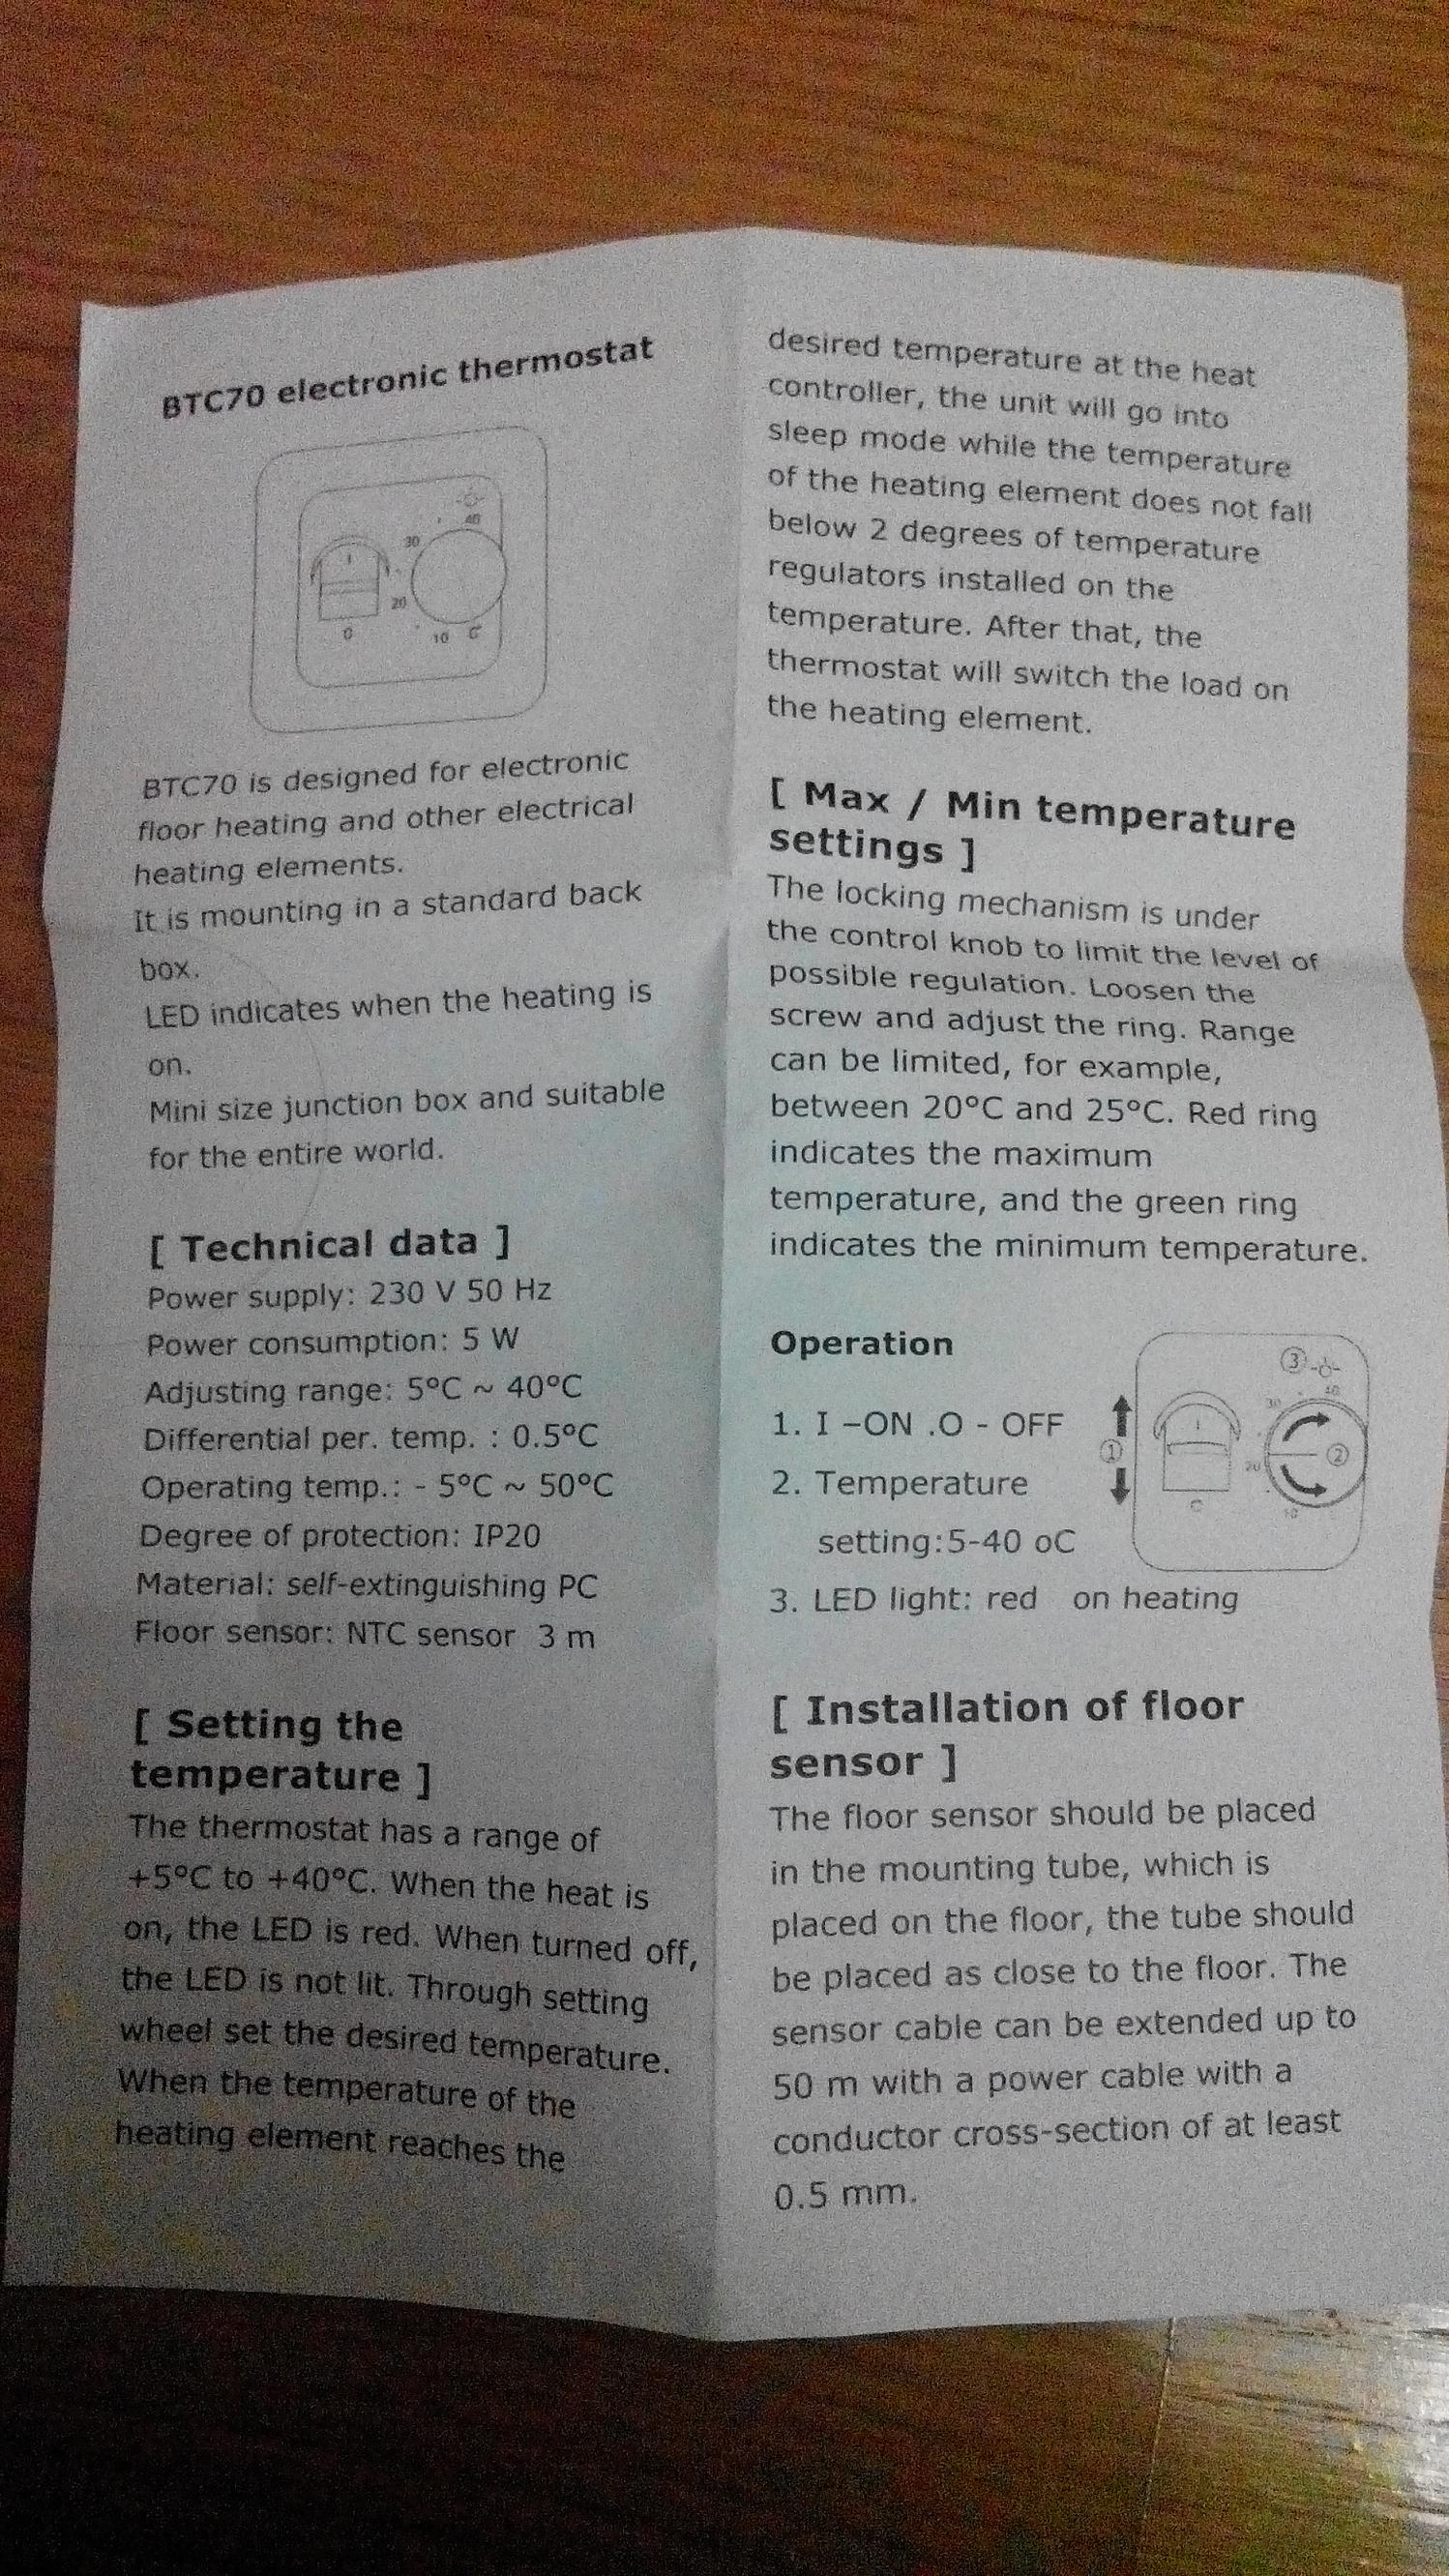 BTC70 electronic thermostat
40
30
20
10
BTC70 is designed for electronic
floor heating and other electrical
heating elements.
It is mounting in a standard back
box.
LED indicates when the heating is
on.
Mini size junction box and suitable
for the entire world.
[ Technical data ]
Power supply: 230 V 50 Hz
Power consumption: 5 W
Adjusting range: 5°C ~ 40°C
Differential per. temp. : 0.5°C
Operating temp.: - 5°C ~ 50°C
Degree of protection: IP20
Material: self-extinguishing PC
Floor sensor: NTC sensor 3 m
[ Setting the
temperature ]
The thermostat has a range of
+5°C to +40°C. When the heat is
on, the LED is red. When turned off,
the LED is not lit. Through setting
wheel set the desired temperature.
When the temperature of the
heating element reaches the
desired temperature at the heat
controller, the unit will go into
sleep mode while the temperature
of the heating element does not fall
below 2 degrees of temperature
regulators installed on the
temperature. After that, the
thermostat will switch the load on
the heating element.
[ Max / Min temperature
settings ]
The locking mechanism is under
the control knob to limit the level of
possible regulation. Loosen the
screw and adjust the ring. Range
can be limited, for example,
between 20°C and 25°C. Red ring
indicates the maximum
temperature, and the green ring
indicates the minimum temperature.
Operation
1. I –ON .O - OFF
2. Temperature
setting:5-40 oC
3. LED light: red on heating
③
40
30
①
②
20
10
[ Installation of floor
sensor ]
The floor sensor should be placed
in the mounting tube, which is
placed on the floor, the tube should
be placed as close to the floor. The
sensor cable can be extended up to
50 m with a power cable with a
conductor cross-section of at least
0.5 mm.